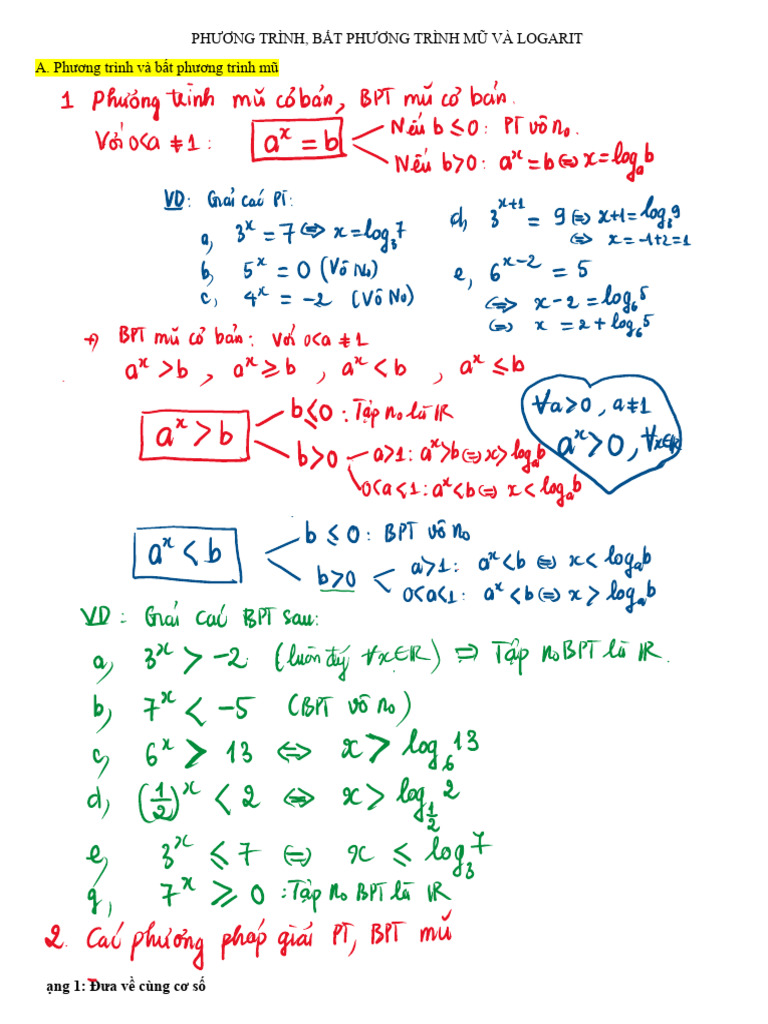 PHƯƠNG TRÌNH, BẤT PHƯƠNG TRÌNH MŨ VÀ LOGARIT
A. Phương trình và bất phương trình mũ
1 Phương trình mũ cơ bản, BPT mũ cơ bản.
Với 0<a≠1: a^x = b
Nếu b ≤ 0: PT vô no.
Nếu b>0: a^x = b ⇔ x = log_a b
VD: Giải các PT:
a, 3^x = 7 ⇔ x = log_3 7
b, 5^x = 0 (Vô No)
c, 4^x = -2 (Vô No)
d, 3^{x+1} = 9 ⇔ x+1 = log_3 9
⇔ x = -1+2=1
e, 6^{x-2} = 5
⇔ x-2 = log_6 5
⇔ x = 2 + log_6 5
+) BPT mũ cơ bản: Với 0<a≠1
a^x > b, a^x ≥ b, a^x < b, a^x ≤ b
a^x > b
b ≤ 0: Tập no là IR
b>0
a>1: a^x > b ⇔ x > log_a b
0<a<1: a^x < b ⇔ x < log_a b
∀a>0, a≠1
a^x > 0, ∀x∈R
a^x < b
b ≤ 0: BPT vô no
b>0
a>1: a^x < b ⇔ x < log_a b
0<a<1: a^x < b ⇔ x > log_a b
VD: Giải các BPT sau:
a, 3^x > -2 (luôn đúng ∀x∈R) ⇒ Tập no BPT là IR.
b, 7^x < -5 (BPT vô no)
c, 6^x > 13 ⇔ x > log_6 13
d, (1/2)^x < 2 ⇔ x > log_{1/2} 2
e, 3^x ≤ 7 ⇔ x ≤ log_3 7
g, 7^x ≥ 0: Tập no BPT là IR
2. Các phương pháp giải PT, BPT mũ
ạng 1: Đưa về cùng cơ số